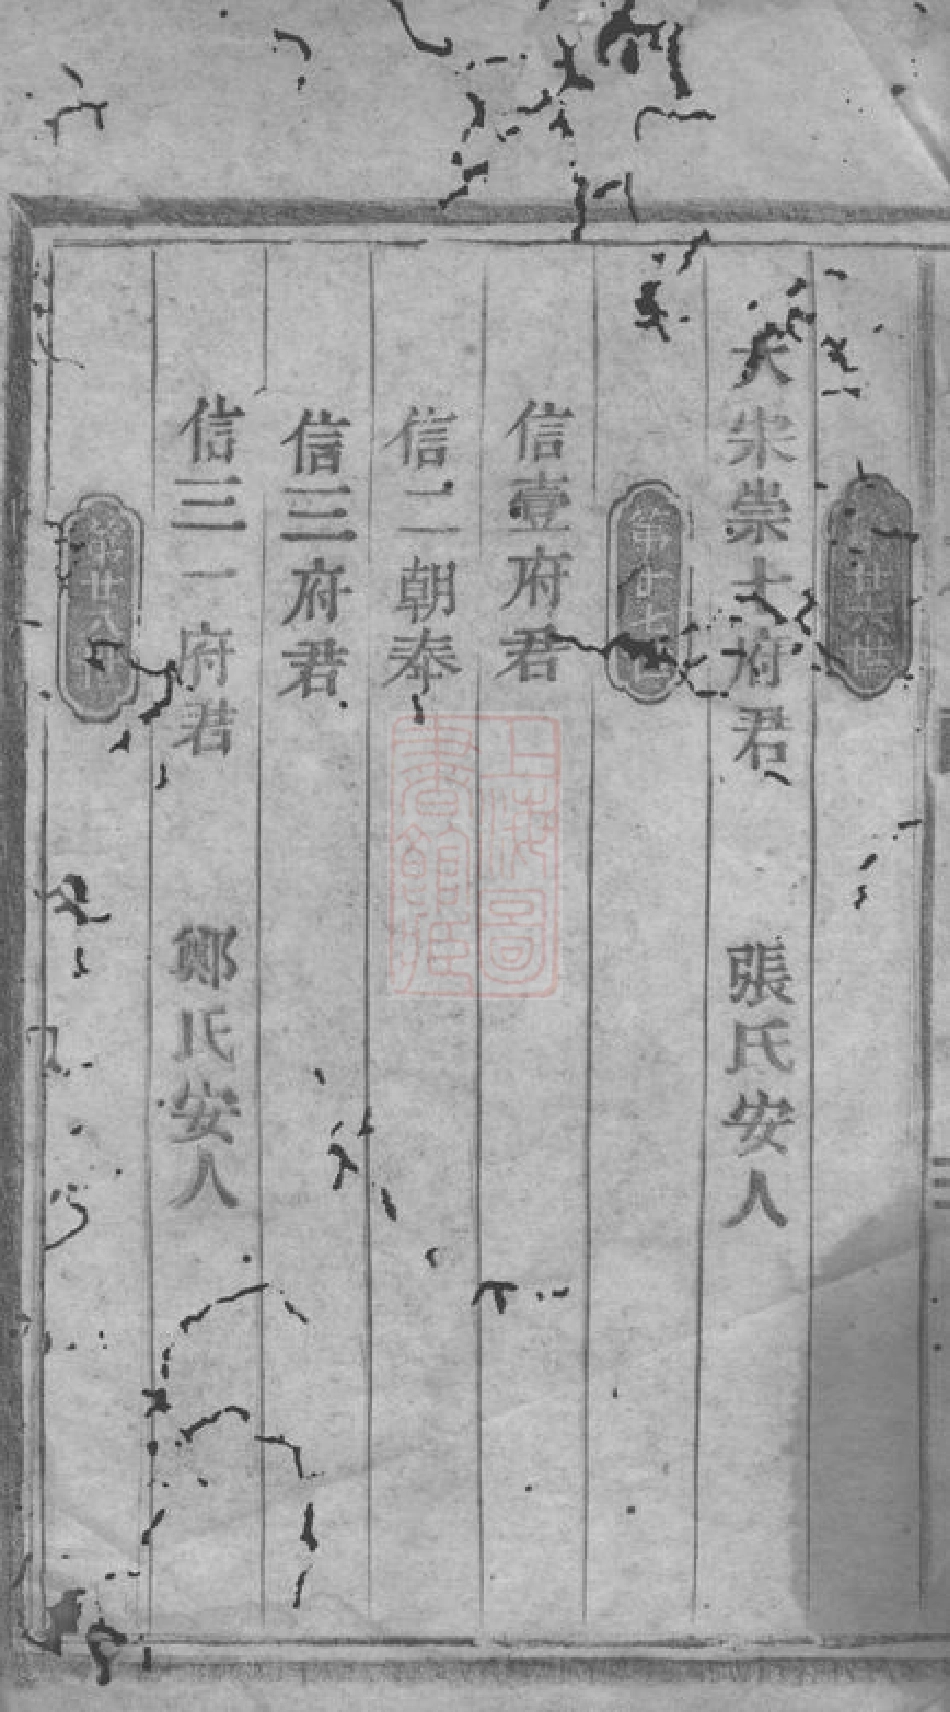 第廿六世
大宋崇士府君 張氏安人
第廿七世
信壹府君
信二朝奉
信三府君
信三一府君 鄭氏安人
第廿八世
上海圖書館藏